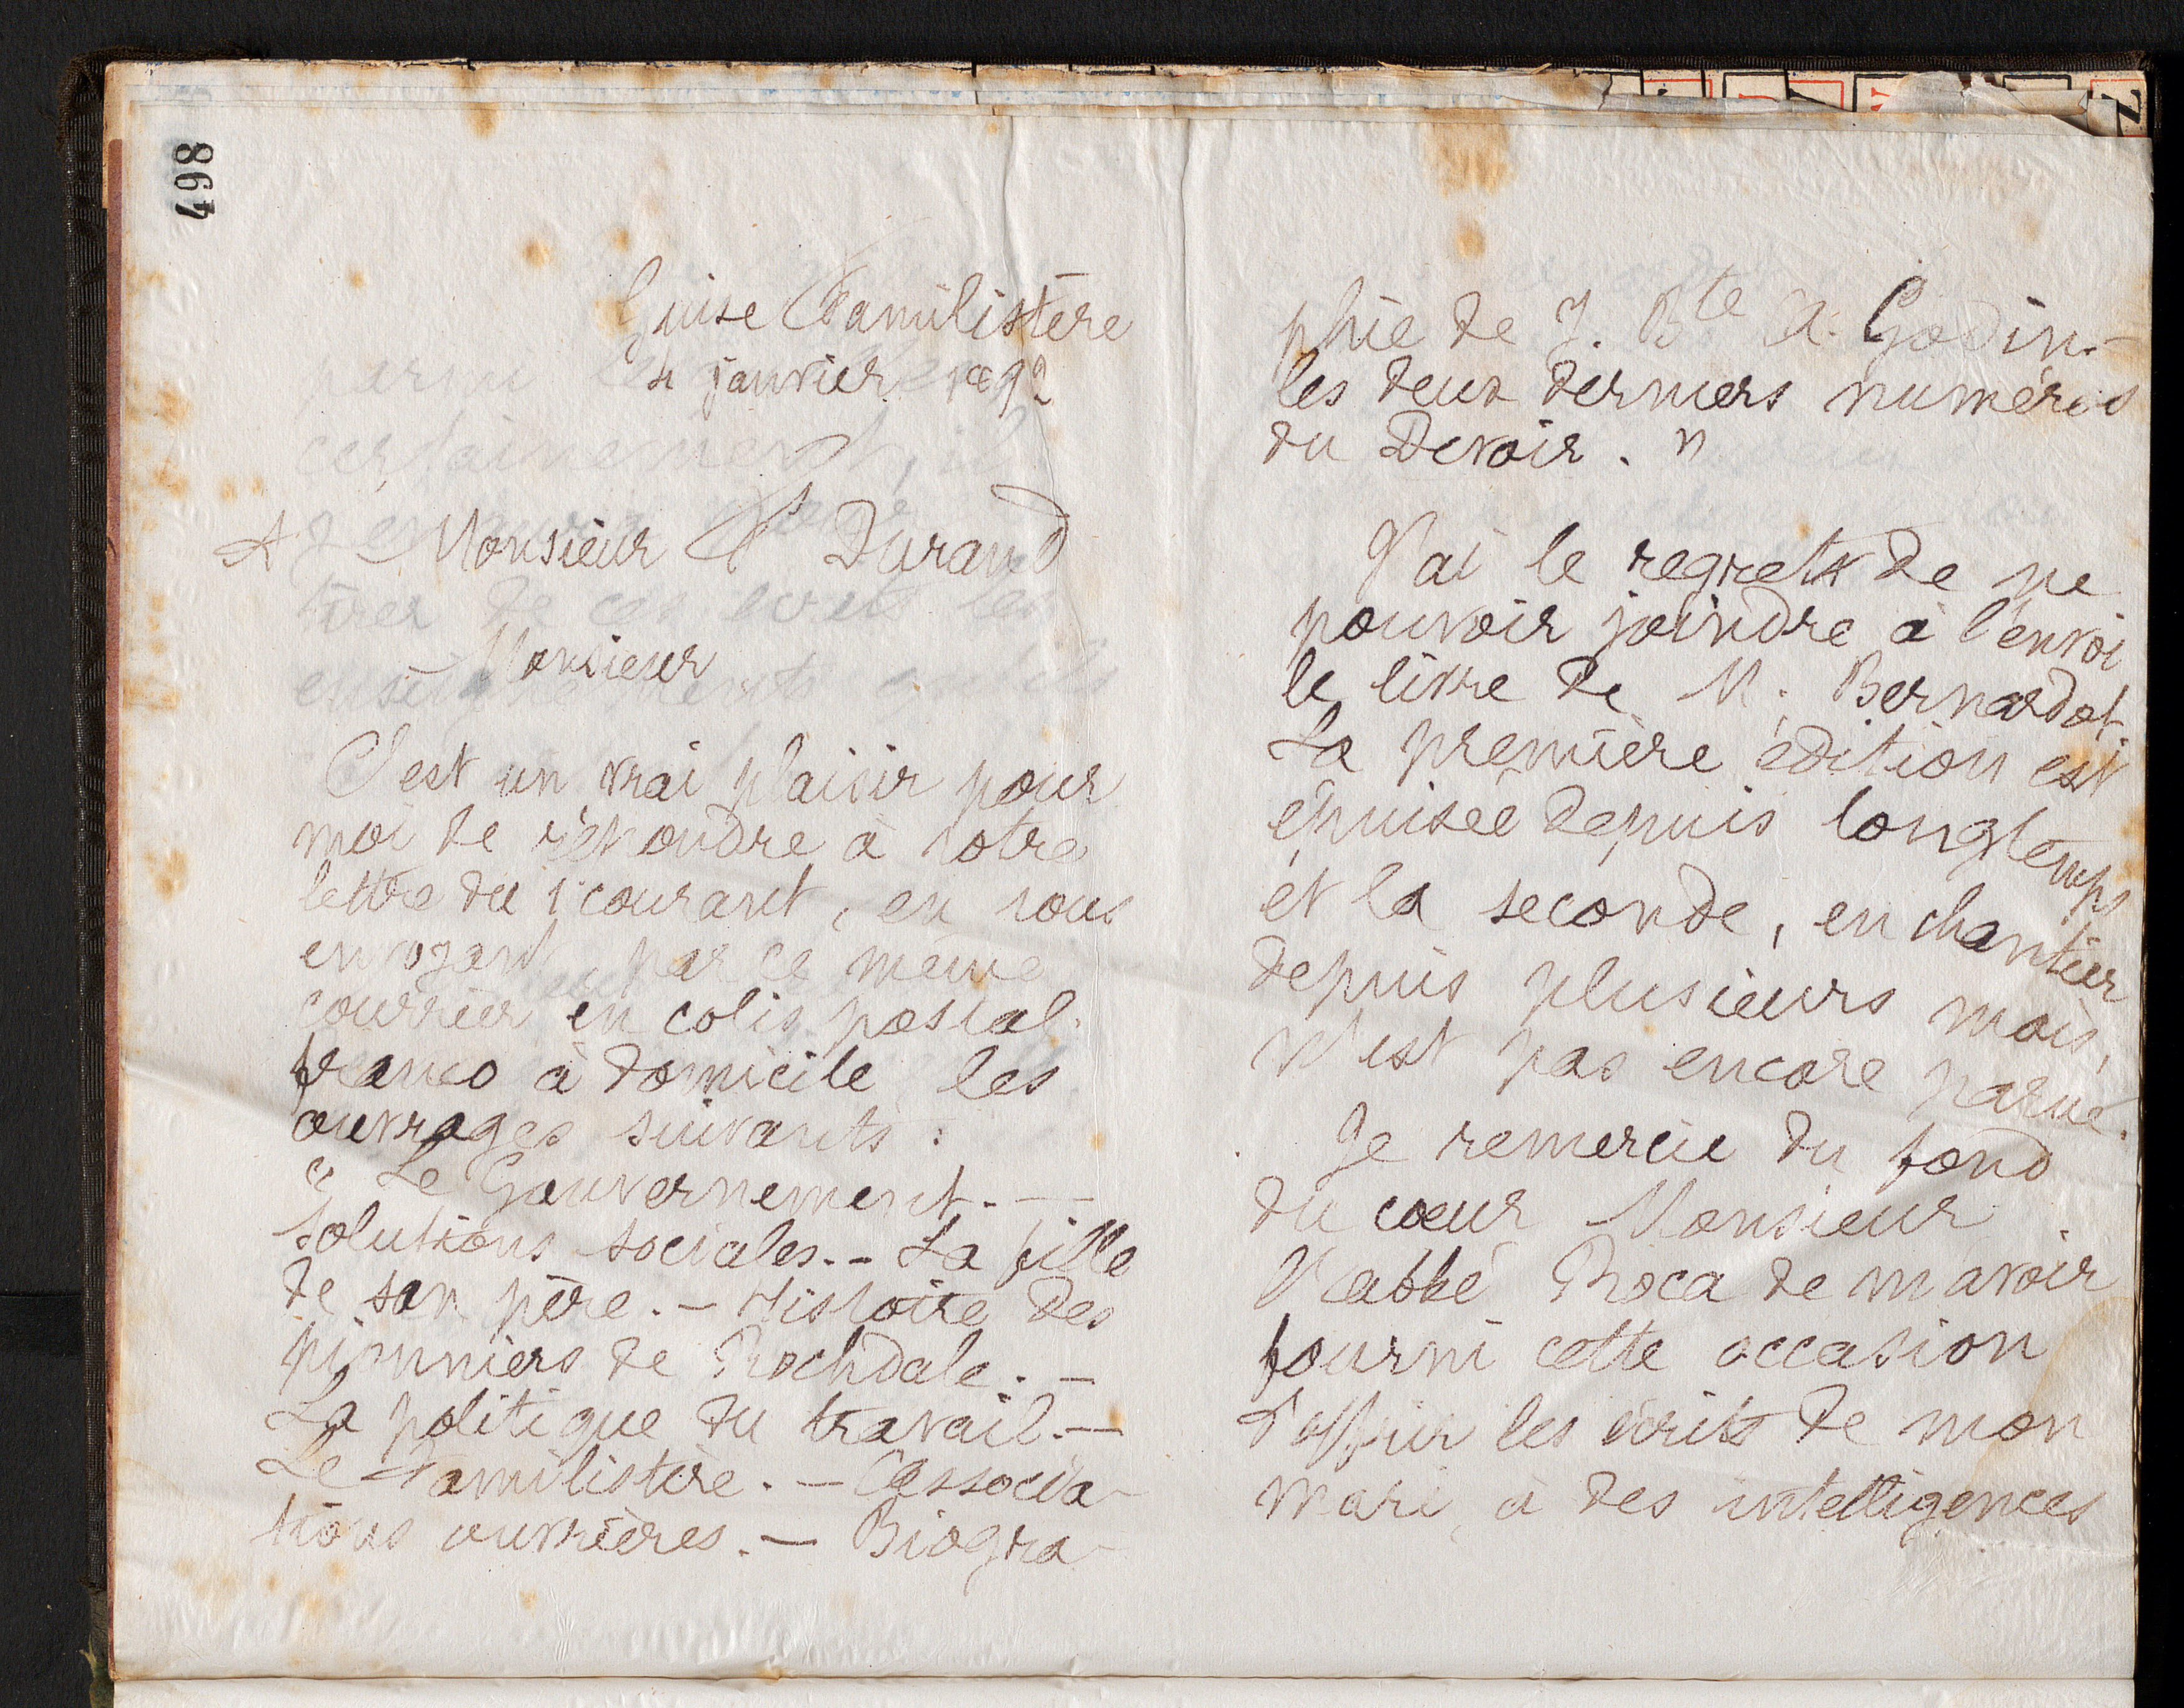 498
Guise Familistère
4 janvier 1892
A Monsieur Durand
Monsieur
C'est un vrai plaisir pour
moi de répondre à votre
lettre du 1er courant, en vous
envoyant, par ce même
courrier en colis postal
franco à domicile les
ouvrages suivants :
« Le Gouvernement. —
Solutions sociales. - La fille
de son père. - Histoire des
pionniers de Rochdale. -
La politique du travail. -
Le Familistère. - Associa-
tions ouvrières. - Biogra-
phie de J. Bte A. Godin. -
les deux derniers numéros
du Devoir. »
J'ai le regret de ne
pouvoir joindre à l'envoi
le livre de M. Bernardot.
La première édition est
épuisée depuis longtemps
et la seconde, en chantier
depuis plusieurs mois,
n'est pas encore parue.
Je remercie du fond
du cœur Monsieur
l'abbé Roca de m'avoir
fourni cette occasion
d'offrir les écrits de mon
mari à des intelligences